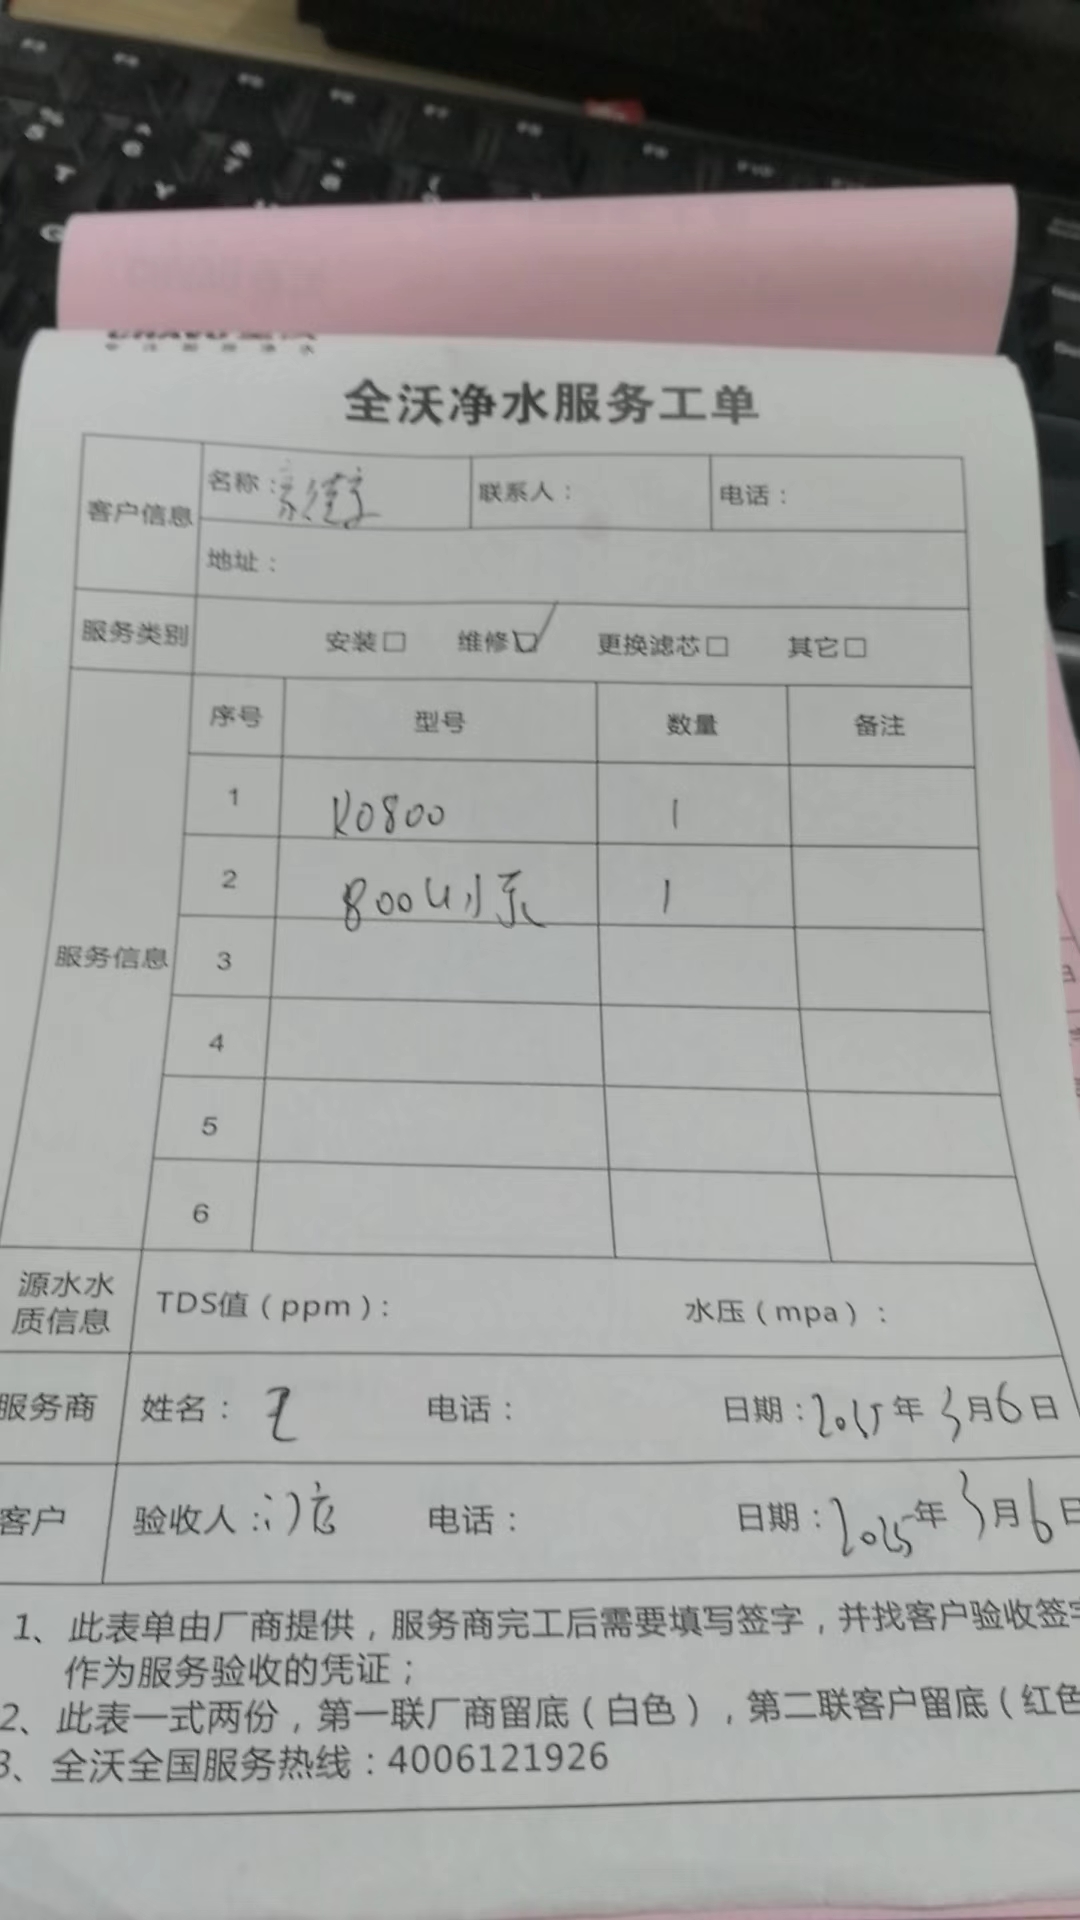 全沃净水服务工单
客户信息 名称： 联系人： 电话：
地址：
服务类别 安装□ 维修☑ 更换滤芯□ 其它□
服务信息 序号 型号 数量 备注
1 RO800 1
2 800G水泵 1
3
4
5
6
源水水质信息 TDS值（ppm）： 水压（mpa）：
服务商 姓名： 电话： 日期：2025年3月6日
客户 验收人： 电话： 日期：2025年3月6日
1、此表单由厂商提供，服务商完工后需要填写签字，并找客户验收签字
作为服务验收的凭证；
2、此表一式两份，第一联厂商留底（白色），第二联客户留底（红色
3、全沃全国服务热线：4006121926